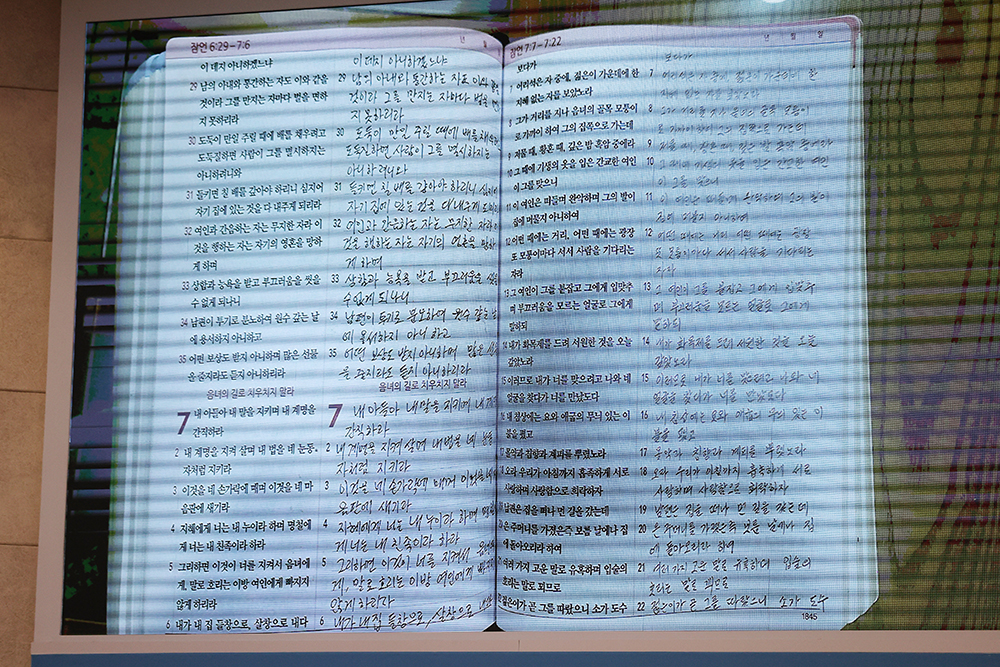 잠언 6:29-7:6
년 월
이 데지 아니하겠느냐
29 남의 아내와 통간하는 자도 이와 같을
것이라 그를 만지는 자마다 벌을 면하
지 못하리라
30 도둑이 만일 주릴 때에 배를 채우려고
도둑질하면 사람이 그를 멸시하지는
아니하려니와
31 들키면 칠 배를 갚아야 하리니 심지어
자기 집에 있는 것을 다 내주게 되리라
32 여인과 간음하는 자는 무지한 자라 이
것을 행하는 자는 자기의 영혼을 망하
게 하며
33 상함과 능욕을 받고 부끄러움을 씻을
수 없게 되나니
34 남편이 투기로 분노하여 원수 갚는 날
에 용서하지 아니하고
35 어떤 보상도 받지 아니하며 많은 선물
을 줄지라도 듣지 아니하리라
음녀의 길로 치우치지 말라
7 내 아들아 내 말을 지키며 내 계명을
간직하라
2 내 계명을 지켜 살며 내 법을 네 눈동
자처럼 지키라
3 이것을 네 손가락에 매며 이것을 네 마
음판에 새기라
4 지혜에게 너는 내 누이라 하며 명철에
게 너는 내 친족이라 하라
5 그리하면 이것이 너를 지켜서 음녀에
게, 말로 호리는 이방 여인에게 빠지지
않게 하리라
6 내가 내 집 들창으로, 살창으로 내다
이 데지 아니하겠느냐
29 남의 아내와 통간하는 자도 이와
것이라 그를 만지는 자마다 벌을 면
지 못하리라
30 도둑이 만일 주릴 때에 배를 채우
도둑질하면 사람이 그를 멸시하지는
아니하려니와
31 들키면 칠 배를 갚아야 하리니
자기 집에 있는 것을 다 내주게
32 여인과 간음하는 자는 무지한 자라
것을 행하는 자는 자기의 영혼을 망하
게 하며
33 상함과 능욕을 받고 부끄러움을
수 없게 되나니
34 남편이 투기로 분노하여 원수 갚는
에 용서하지 아니하고
35 어떤 보상도 받지 아니하며 많은
을 줄지라도 듣지 아니하리라
음녀의 길로 치우치지 말라
7 내 아들아 내 말을 지키며 내
간직하라
2 내 계명을 지켜 살며 내 법을 네 눈
자처럼 지키라
3 이것을 네 손가락에 매며 이것을
음판에 새기라
4 지혜에게 너는 내 누이라 하며
게 너는 내 친족이라 하라
5 그리하면 이것이 너를 지켜서
게, 말로 호리는 이방 여인에게
않게 하리라
6 내가 내 집 들창으로, 살창으로
잠언 7:7-7:22
년 월 일
보다가
7 어리석은 자 중에, 젊은이 가운데에 한
지혜 없는 자를 보았노라
8 그가 거리를 지나 음녀의 골목 모퉁이
로 가까이 하여 그의 집쪽으로 가는데
9 저물 때, 황혼 때, 깊은 밤 흑암 중에라
10 그 때에 기생의 옷을 입은 간교한 여인
이 그를 맞으니
11 이 여인은 떠들며 완악하며 그의 발이
집에 머물지 아니하여
12 어떤 때에는 거리, 어떤 때에는 광장
또 모퉁이마다 서서 사람을 기다리는
자라
13 그 여인이 그를 붙잡고 그에게 입맞추
며 부끄러움을 모르는 얼굴로 그에게
말하되
14 내가 화목제를 드려 서원한 것을 오늘
갚았노라
15 이러므로 내가 너를 맞으려고 나와 네
얼굴을 찾다가 너를 만났도다
16 내 침상에는 요와 애굽의 무늬 있는 이
불을 폈고
17 몰약과 침향과 계피를 뿌렸노라
18 오라 우리가 아침까지 흡족하게 서로
사랑하며 사랑함으로 희락하자
19 남편은 집을 떠나 먼 길을 갔는데
20 은 주머니를 가졌은즉 보름 날에나 집
에 돌아오리라 하여
21 여러 가지 고운 말로 유혹하며 입술의
호리는 말로 꾀므로
22 젊은이가 곧 그를 따랐으니 소가 도수
보다가
7 어리석은 자 중에 젊은이 가운데에 한
지혜 없는 자를 보았노라
8 그가 거리를 지나 음녀의 골목 모퉁이
로 가까이 하여 그의 집쪽으로 가는데
9 저물 때, 황혼 때, 깊은 밤 흑암 중에라
10 그 때에 기생의 옷을 입은 간교한 여인
이 그를 맞으니
11 이 여인은 떠들며 완악하며 그의 발이
집에 머물지 아니하여
12 어떤 때에는 거리 어떤 때에는 광장
또 모퉁이마다 서서 사람을 기다리는
자라
13 그 여인이 그를 붙잡고 그에게 입맞추
며 부끄러움을 모르는 얼굴로 그에게
말하되
14 내가 화목제를 드려 서원한 것을 오늘
갚았노라
15 이러므로 내가 너를 맞으려고 나와 네
얼굴을 찾다가 너를 만났도다
16 내 침상에는 요와 애굽의 무늬 있는 이
불을 폈고
17 몰약과 침향과 계피를 뿌렸노라
18 오라 우리가 아침까지 흡족하게 서로
사랑하며 사랑함으로 희락하자
19 남편은 집을 떠나 먼 길을 갔는데
20 은 주머니를 가졌은즉 보름 날에나 집
에 돌아오리라 하여
21 여러 가지 고운 말로 유혹하며 입술의
호리는 말로 꾀므로
22 젊은이가 곧 그를 따랐으니 소가 도수
1845